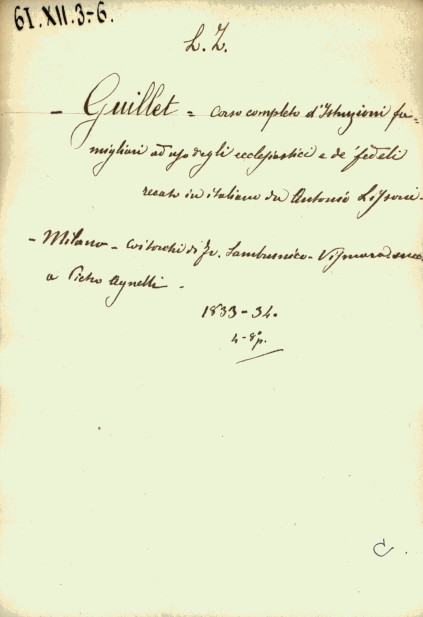 61.XII.3-6.
L. Z.
- Guillet = Corso completo d'Istruzioni fa=
migliari ad uso degli ecclesiastici e de' fedeli
recato in italiano da Antonio Lissoni -
- Milano - Coi torchi di Fr. Lambrusnico - Vismara
a Pietro Agnelli -
1833-34.
4-8°p.
C.